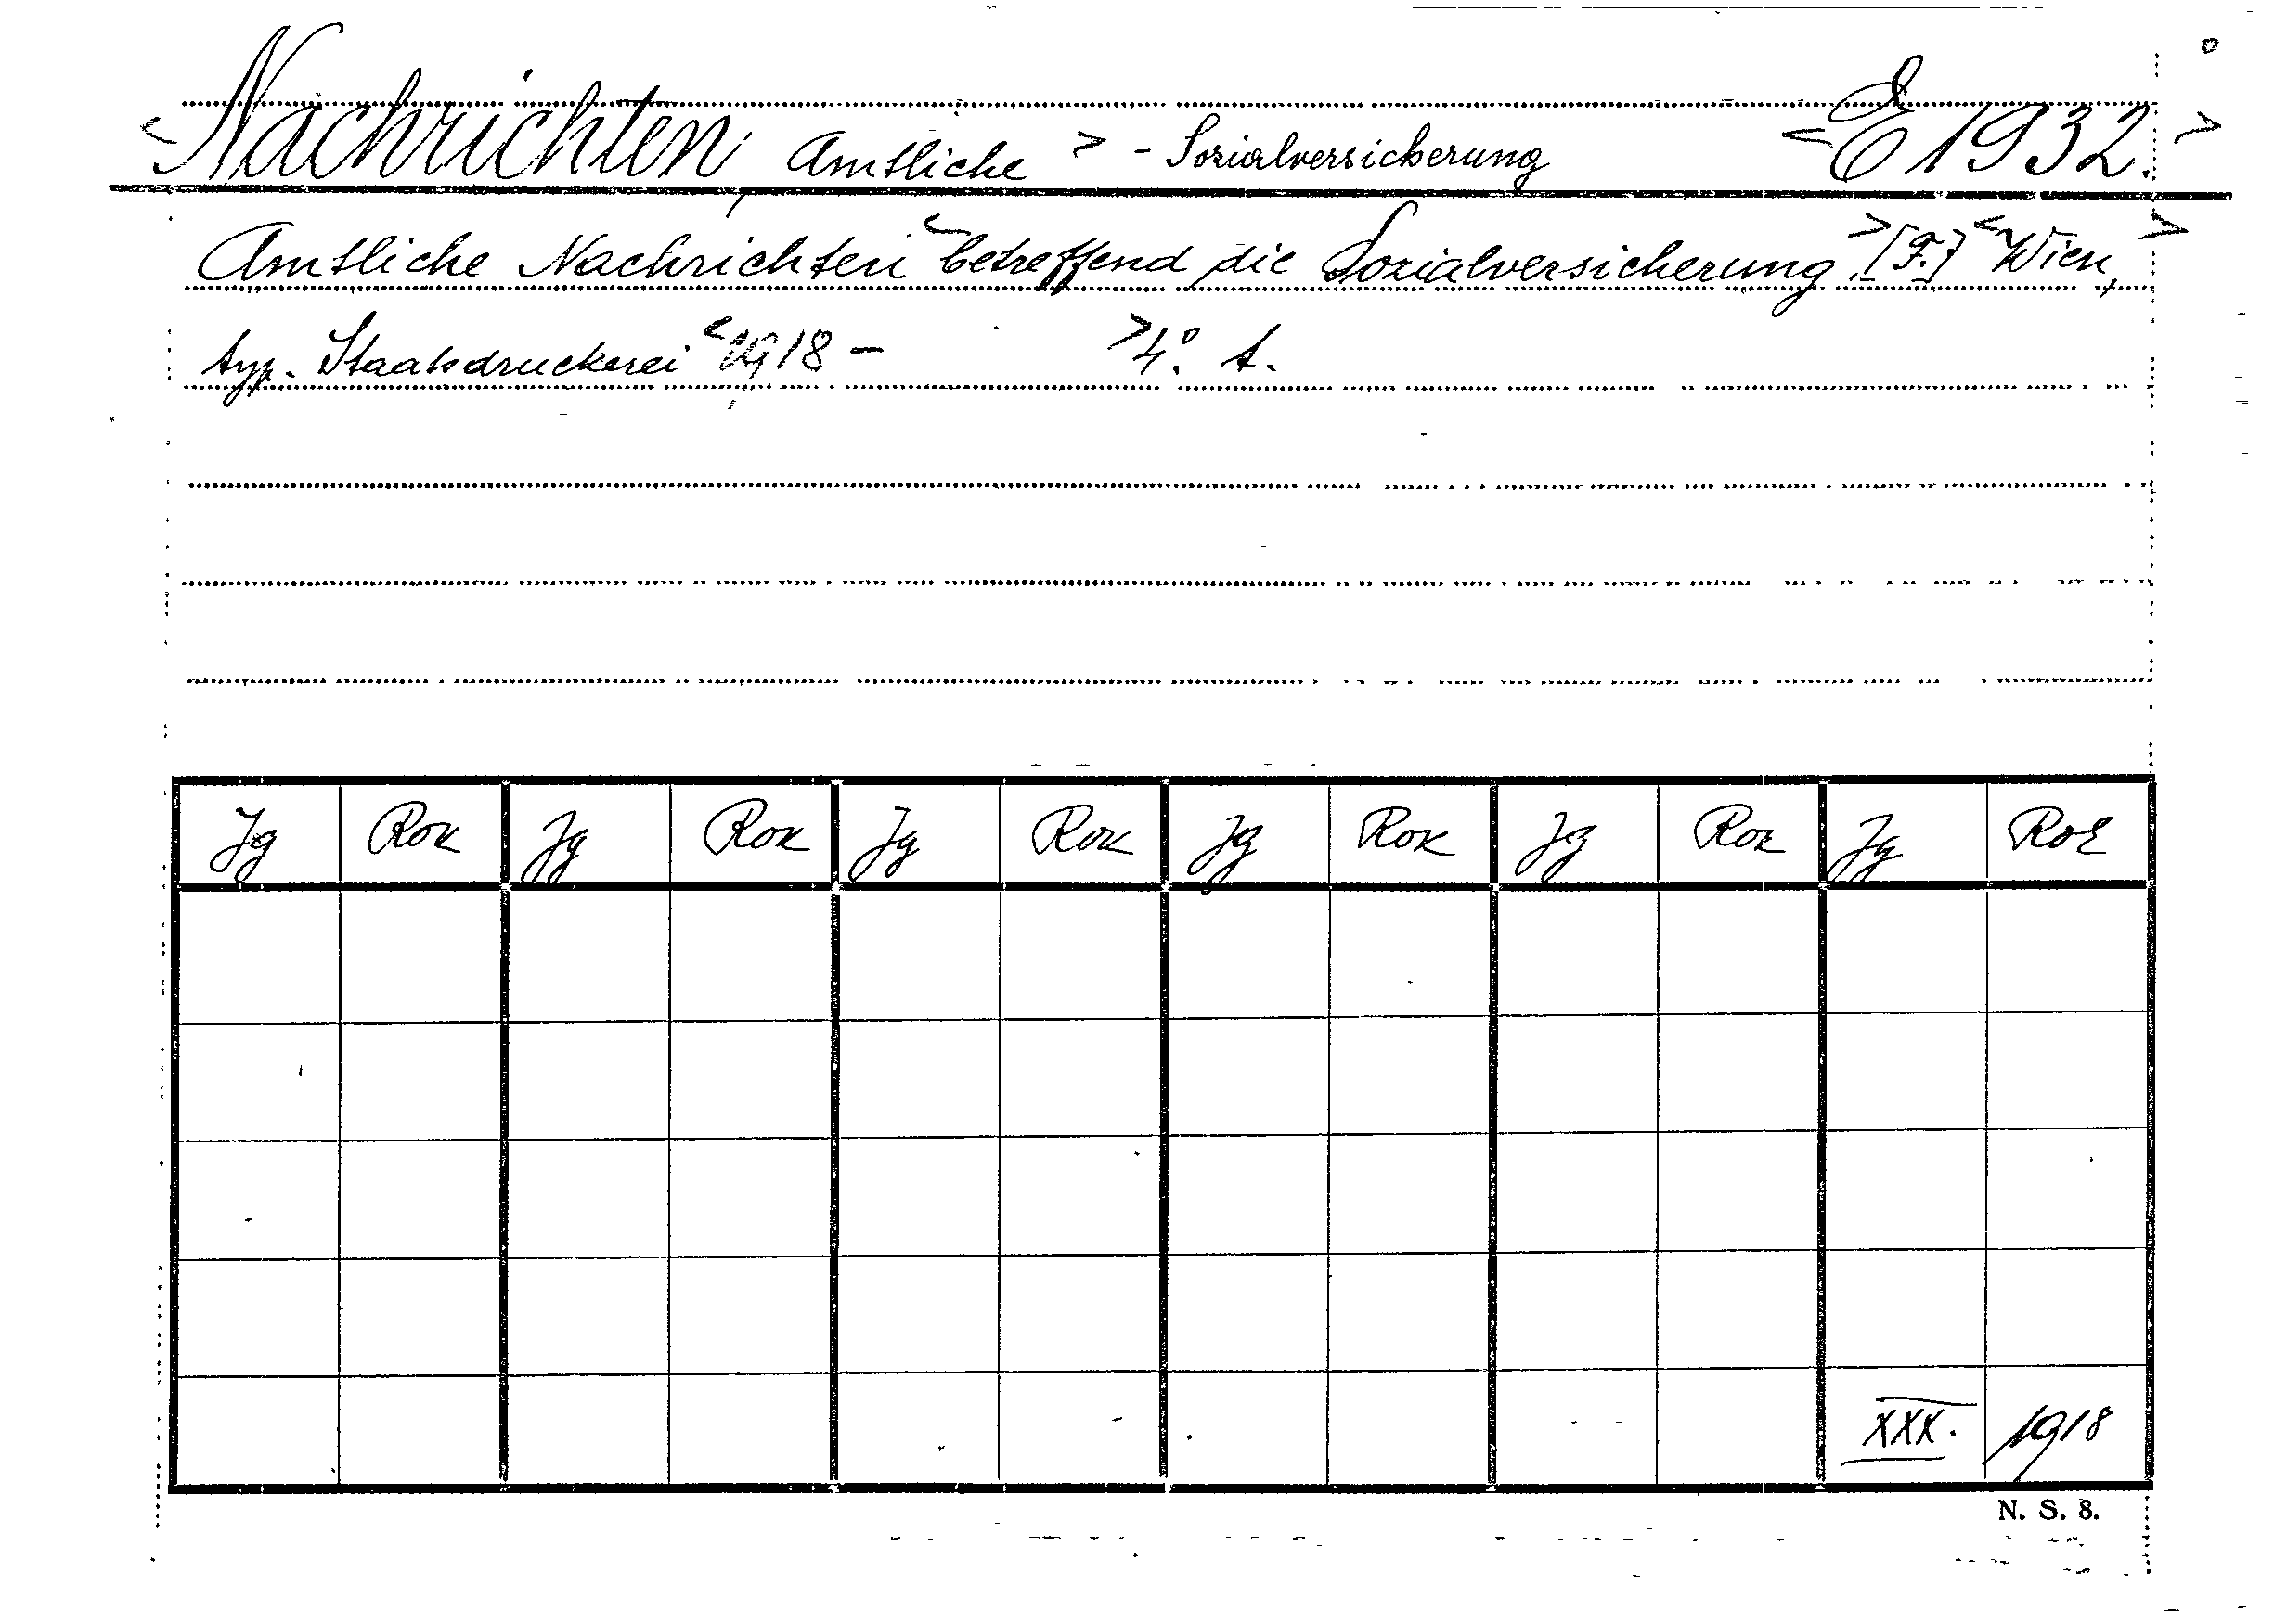 <Nachrichten, Amtliche > - Sozialversicherung <E 1932.>
Amtliche Nachrichten < betreffend die Sozialversicherung > [F.] < Wien, >
typ. Staatsdruckerei < 1918 - > 4°. t.
Jg Rok Jg Rok Jg Rok Jg Rok Jg Rok Jg Rok
XXX. 1918
N. S. 8.